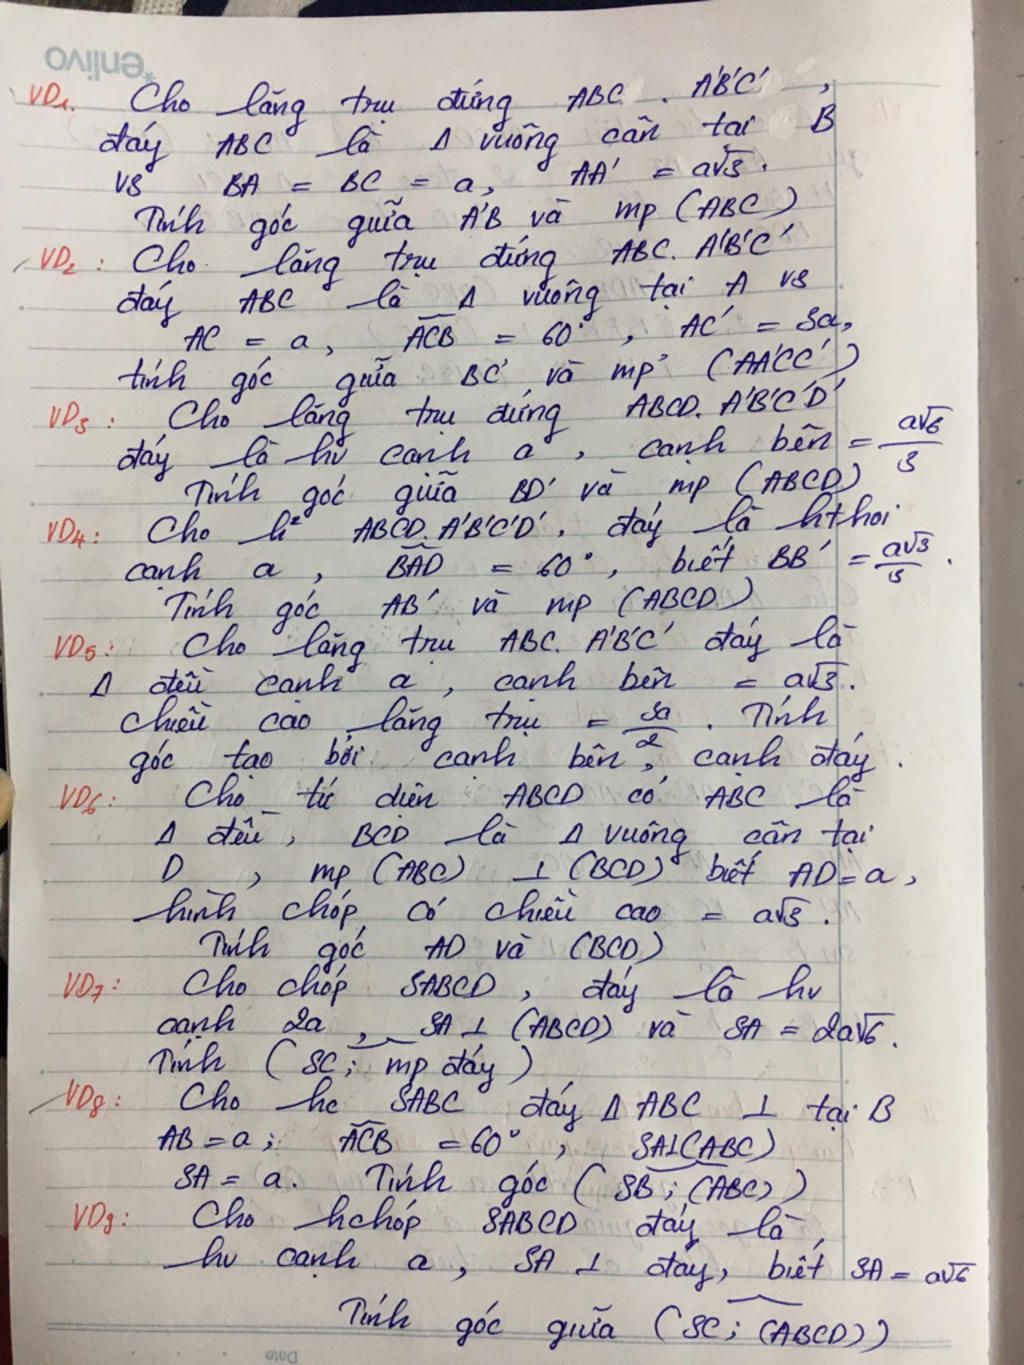 enlivo
VD1. Cho lăng trụ đứng ABC. A'B'C',
đáy ABC là Δ vuông cân tại B
vs BA = BC = a, AA' = a√3.
Tính góc giữa A'B và mp (ABC)
VD2: Cho lăng trụ đứng ABC. A'B'C'
đáy ABC là Δ vuông tại A vs
AC = a, ACB = 60°, AC' = 3a,
tính góc giữa BC' và mp (AA'CC')
VD3: Cho lăng trụ đứng ABCD. A'B'C'D'
đáy là hv cạnh a, cạnh bên = a√6/3
Tính góc giữa BD' và mp (ABCD)
VD4: Cho h² ABCD.A'B'C'D', đáy là hthoi
cạnh a, BAD = 60°, biết BB' = a√3/3.
Tính góc AB' và mp (ABCD)
VD5: Cho lăng trụ ABC. A'B'C' đáy là
Δ đều cạnh a, cạnh bên = a√3.
chiều cao lăng trụ = 3a/2. Tính
góc tạo bởi cạnh bên, cạnh đáy.
VD6: Cho tứ diện ABCD có ABC là
Δ đều, BCD là Δ vuông cân tại
D, mp (ABC) ⊥ (BCD) biết AD = a,
hình chóp có chiều cao = a√3.
Tính góc AD và (BCD)
VD7: Cho chóp SABCD, đáy là hv
cạnh 2a, SA ⊥ (ABCD) và SA = 2a√6.
Tính (SC; mp đáy)
VD8: Cho hc SABC đáy Δ ABC ⊥ tại B
AB = a; ACB = 60°, SA⊥(ABC)
SA = a. Tính góc (SB; (ABC))
VD9: Cho hchóp SABCD đáy là
hv cạnh a, SA ⊥ đáy, biết SA = a√6
Tính góc giữa (SC; (ABCD))
Date